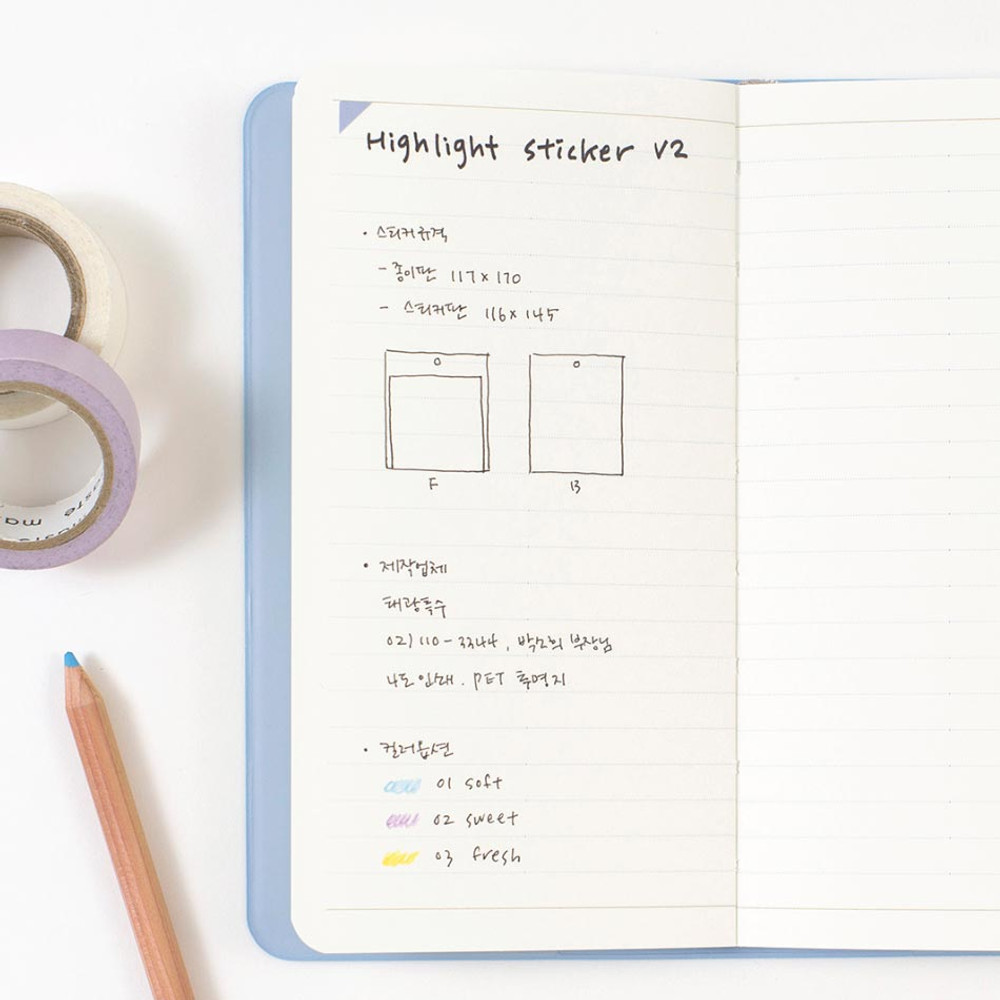 Highlight sticker v2
• 스티커규격
- 종이판 117 x 170
- 스티커판 116 x 145
F
B
• 제작업체
태광특수
02) 110 - 3344, 박소희 부장님
4도 인쇄. PET 투명지
• 컬러옵션
01 soft
02 sweet
03 fresh